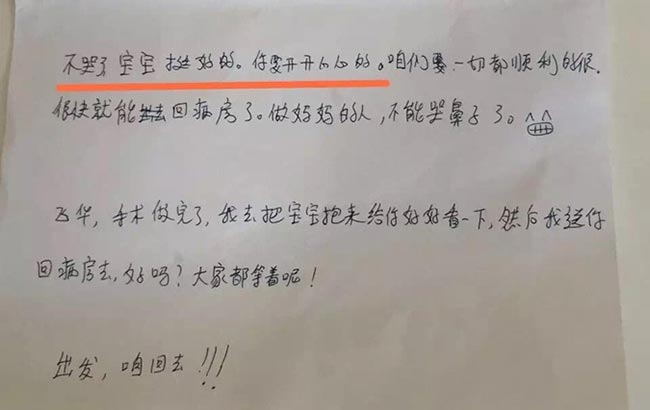 不哭了宝宝挺好的。你要开开心心的。咱们要一切都顺利的很.
很快就能出去回病房了。做妈妈的人,不能哭鼻子了。
飞华,手术做完了,我去把宝宝抱来给你好好看一下,然后我送你
回病房去,好吗?大家都等着呢!
出发,咱回去!!!